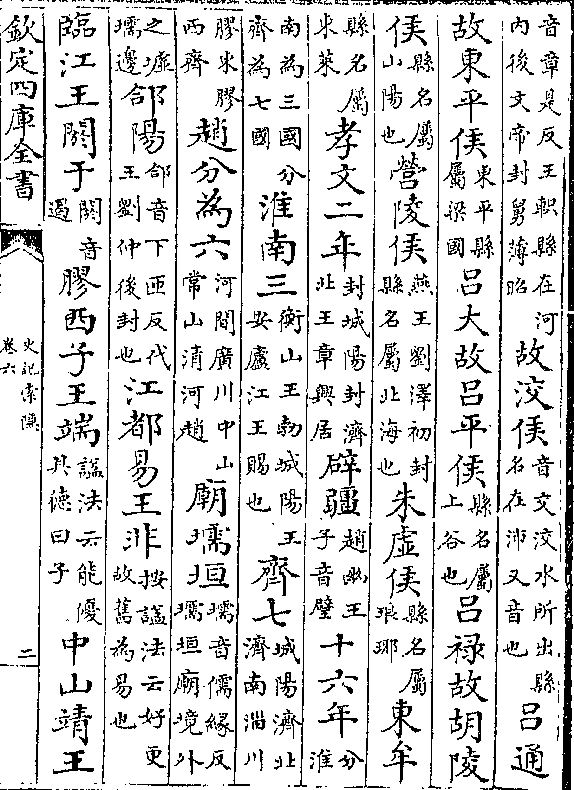 音章是反王軹縣在河内後文帝封舅薄昭故洨侯音交洨水所出縣名在沛又音也呂通
故東平侯東平縣屬梁國呂大故呂平侯縣名屬上谷也呂祿故胡陵
侯縣名屬山陽也營陵侯燕王劉澤初封縣名屬北海也朱虛侯縣名屬琅邪東牟
縣名屬東萊孝文二年封城陽封濟北王章興居辟疆趙幽王子音璧十六年分淮
南為三國分齊為七國淮南三衡山王勃城陽王安廬江王賜也齊七城陽濟北濟南淄川
膠東膠西齊趙分為六河間廣川中山常山清河趙廟壖垣壖音儒緣反壖垣廟境外
之墟壖邊郃陽郃音下匝反代王劉仲後封也江都易王非按諡法云好更故舊為易也
臨江王閼于閼音遏膠西子王端諡法云能優其德曰子中山靖王
欽定四庫全書
史記索隱
卷六
二